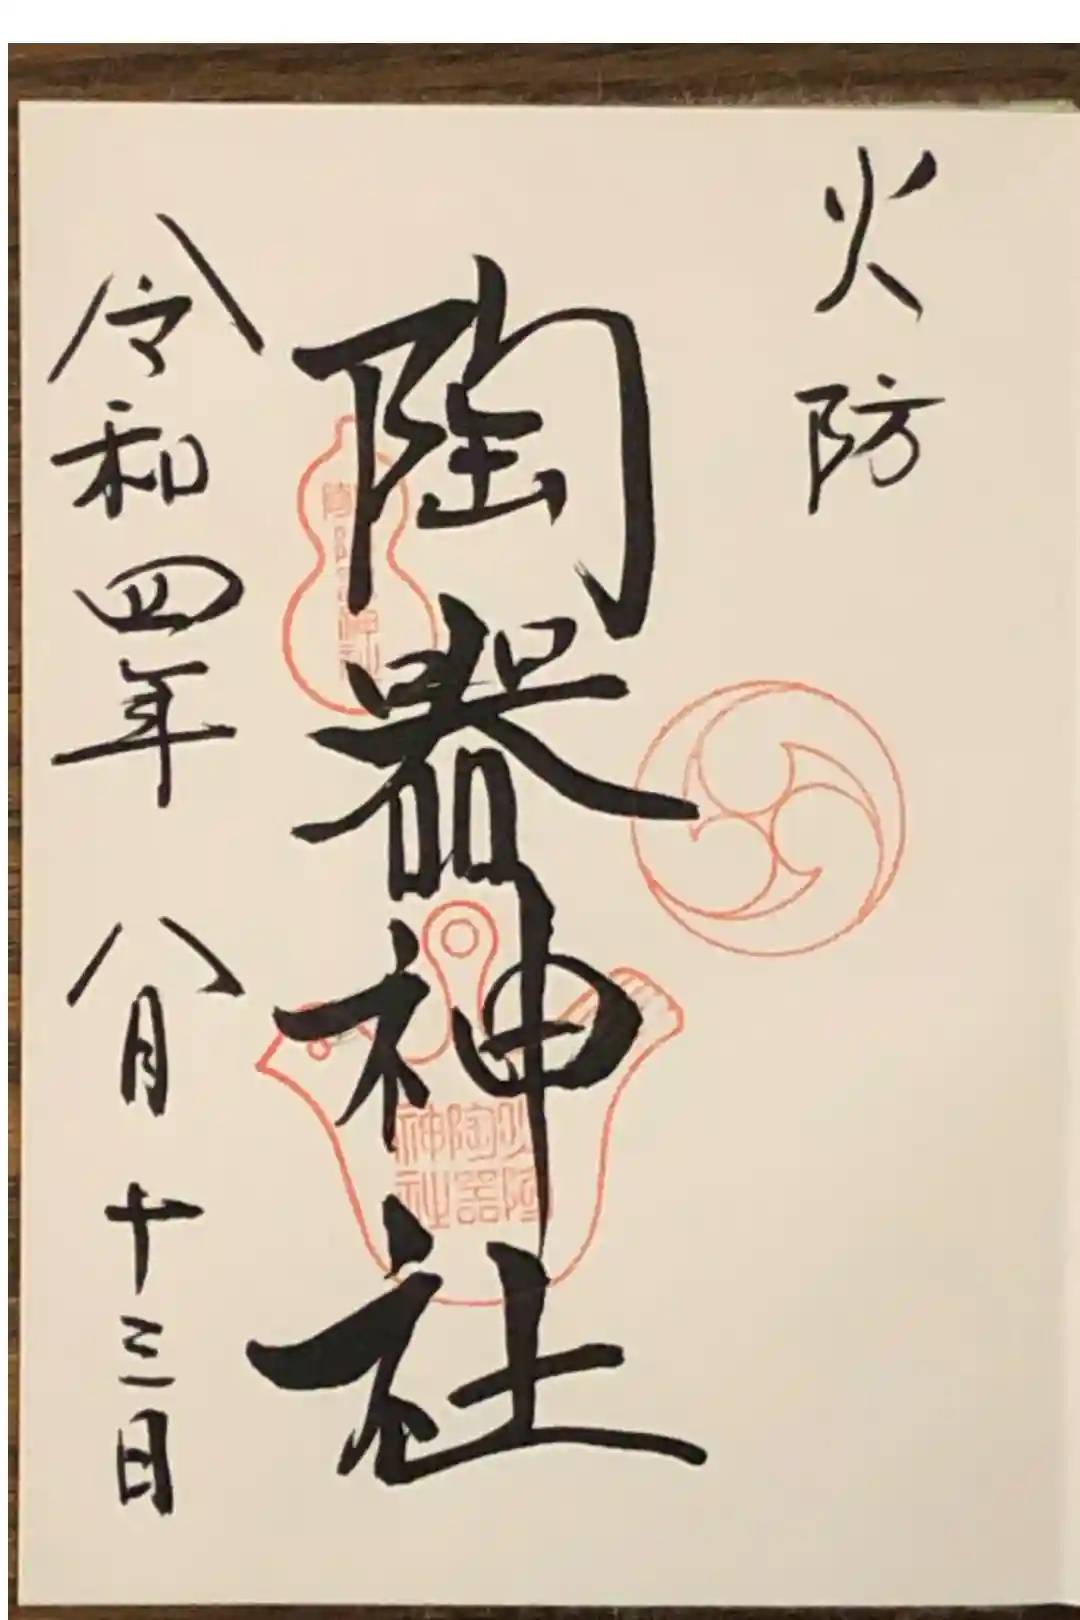 火防
陶器神社
火防
陶器
神社
陶器神社
令和四年 八月十三日